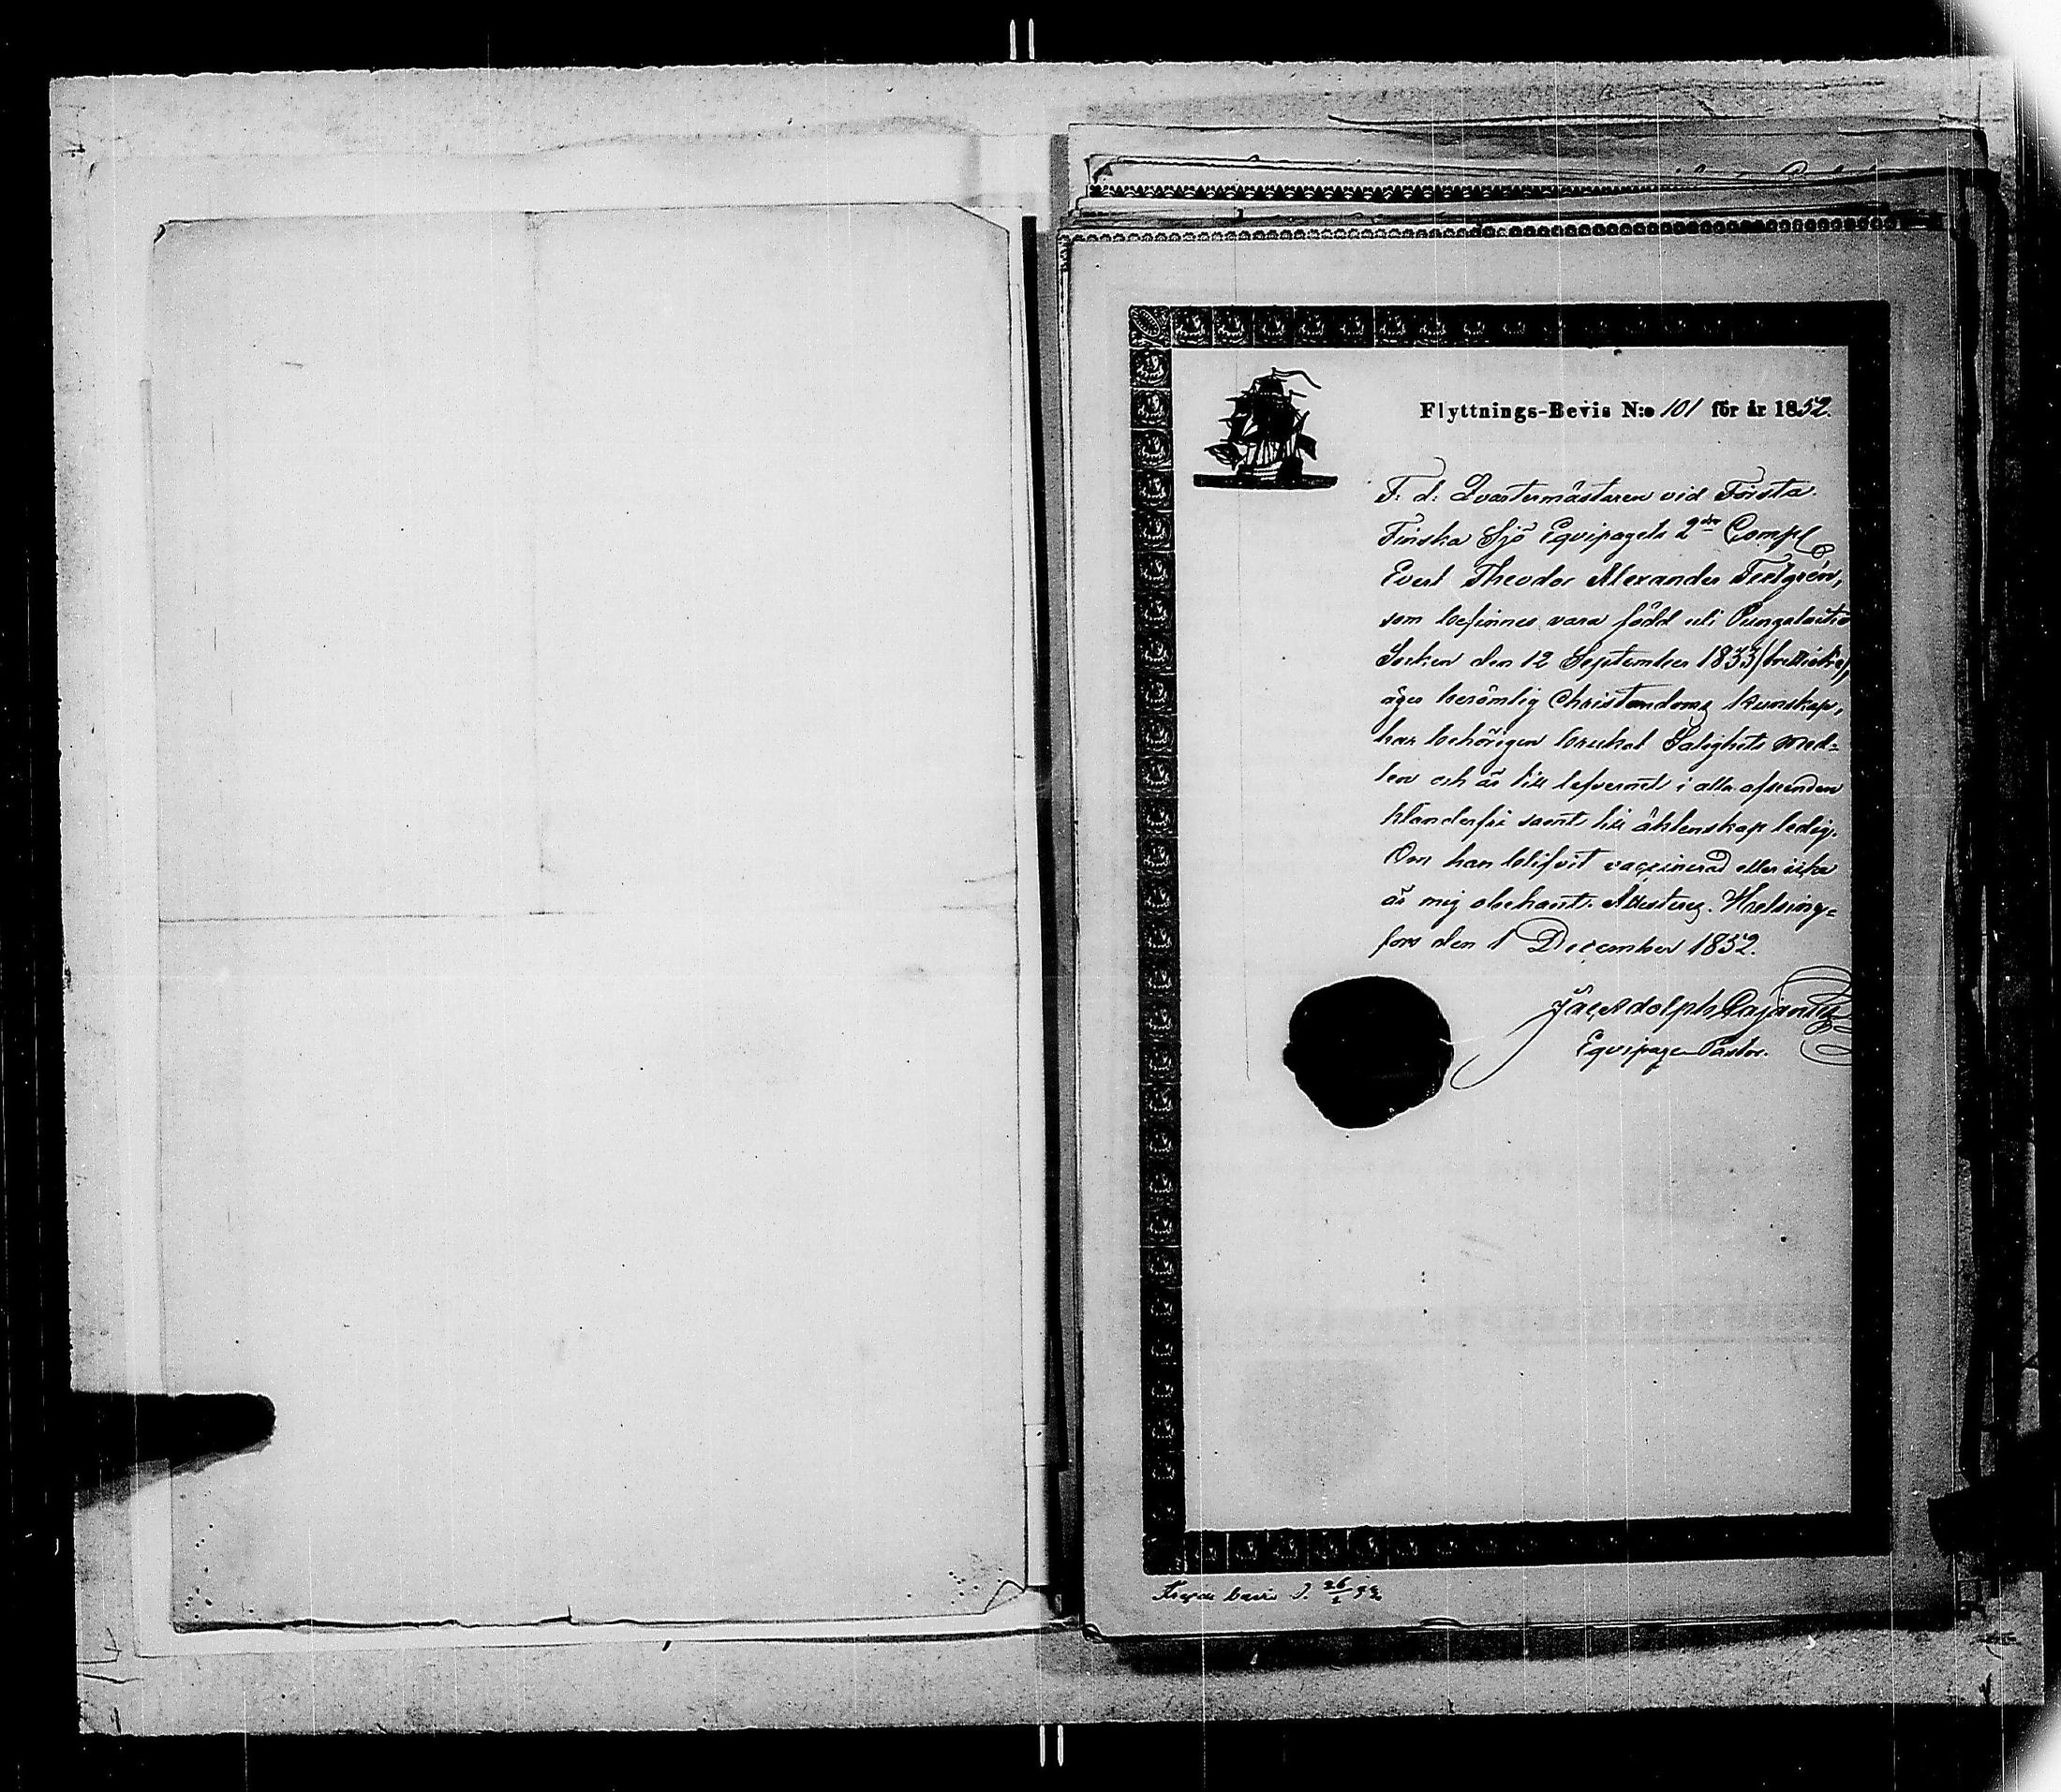 Flyttnings-Bevis N:o 101 för år 1852.
F. d. Qvartermästaren vid Första
Finska Sjö Equipagets 2dra Comp
Evert Theodor Alexander
som befinnes vara född uti Pungalaitio
Socken den 12 September 1833 (trettiotre),
äger berömlig Christendoms kunskap,
har behörigen brukat Salighets med-
len och är till lefvernet i alla afseenden
klanderfri samt till äktenskap ledig.
Om han blifvit vaccinerad eller icke
är mig obekant. Attesteras. Helsing-
fors den 1 December 1852.
Jac Adolph Cajanus
Equipage Pastor.
bevis d. 26/2 53